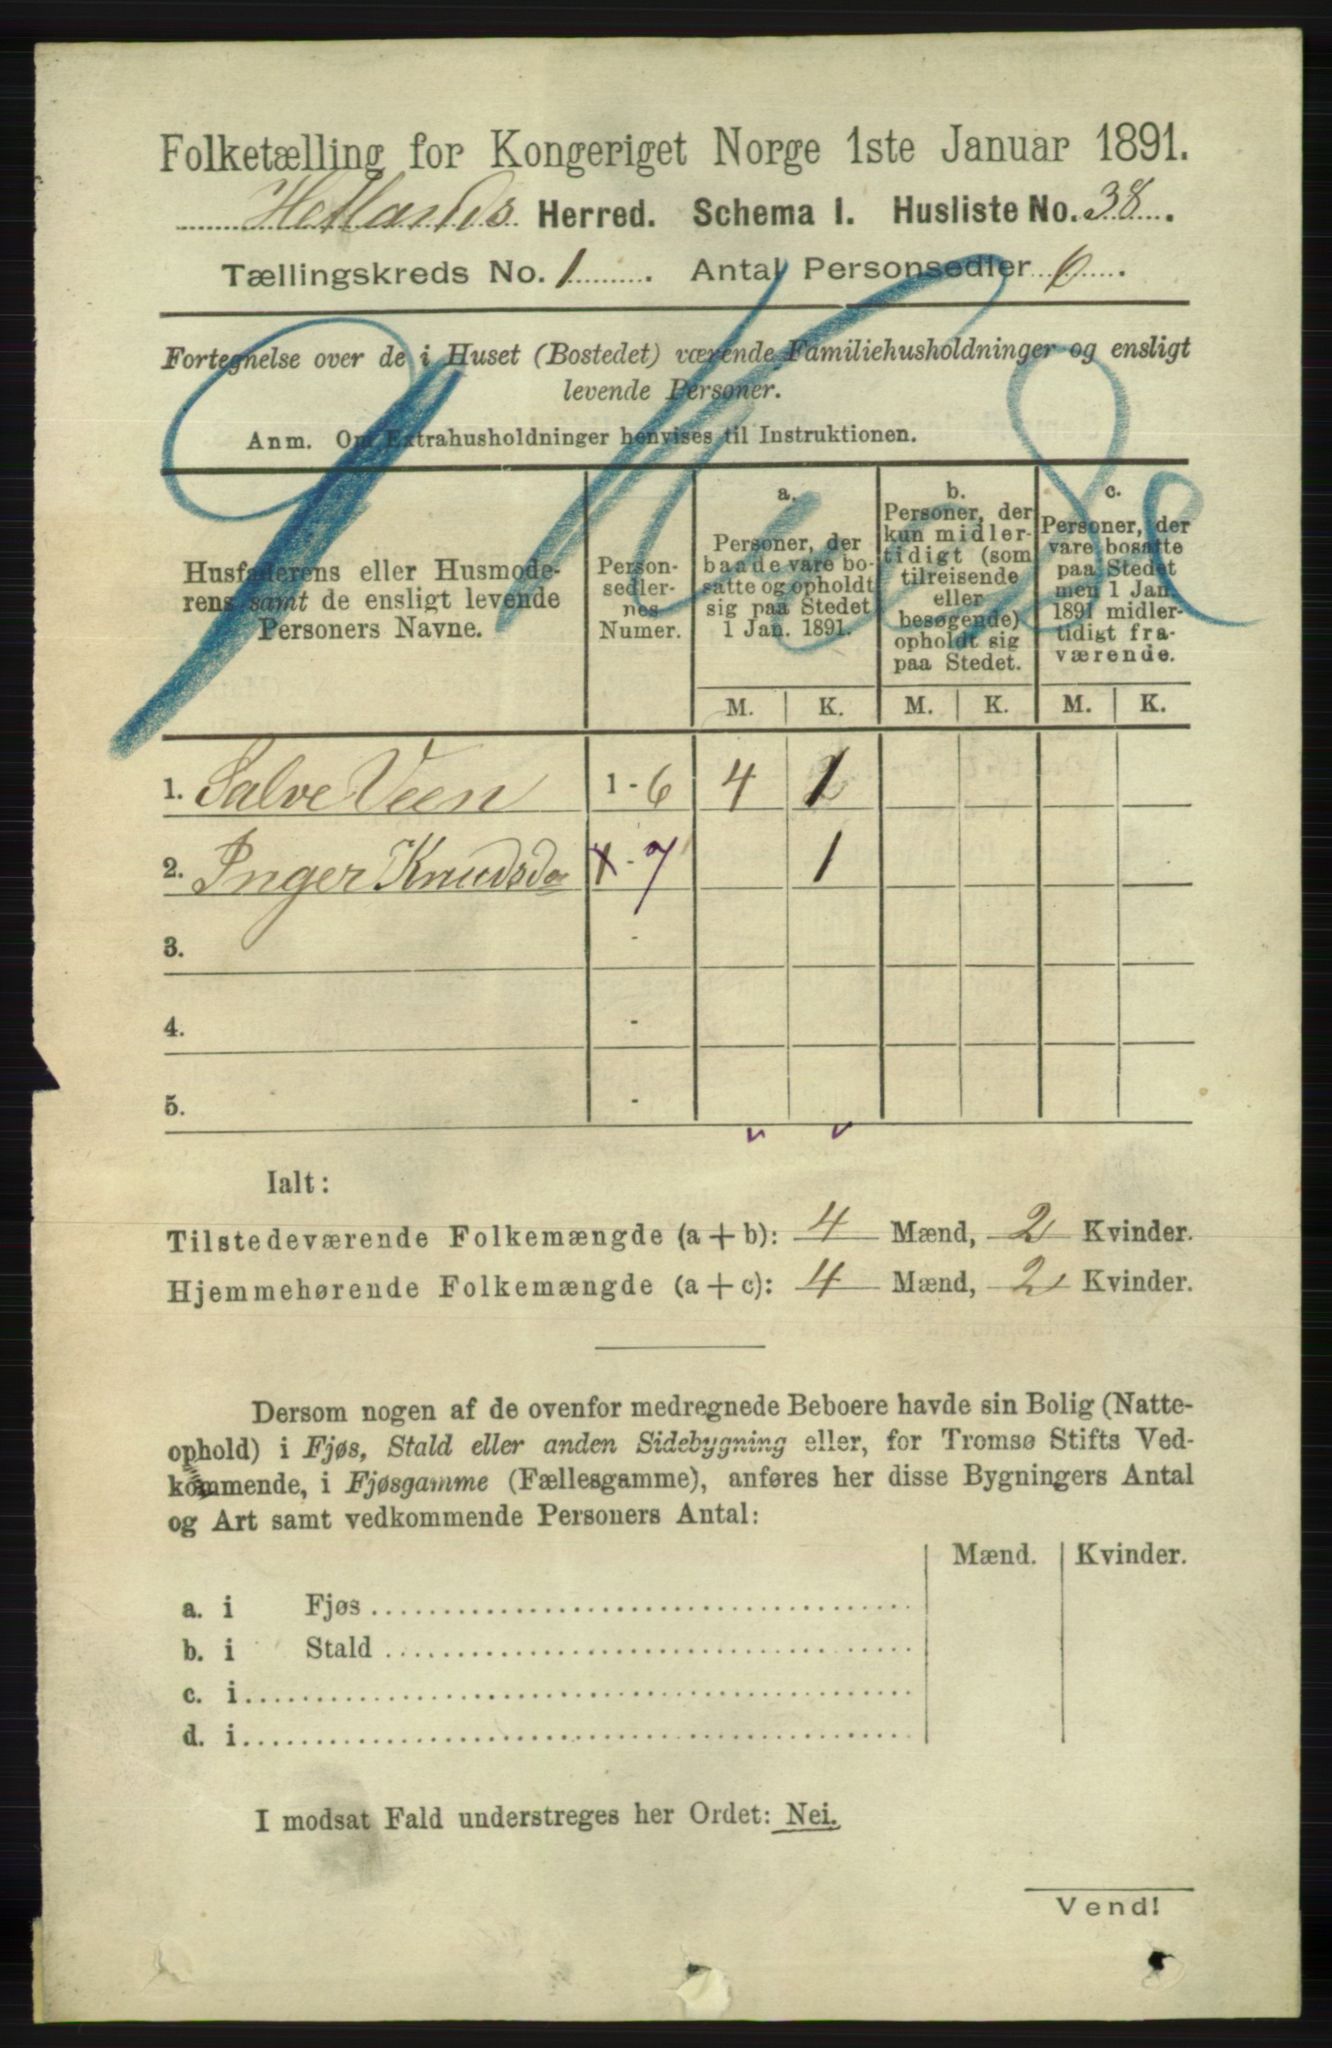 Folketælling for Kongeriget Norge 1ste Januar 1891.
Hetlands Herred. Schema I. Husliste No. 38.
Tællingskreds No. 1. Antal Personsedler 6.
Fortegnelse over de i Huset (Bostedet) værende Familiehusholdninger og ensligt
levende Personer.
Anm. Om Extrahusholdninger henvises til Instruktionen.
Husfaderens eller Husmode-
rens samt de ensligt levende
Personers Navne.
Person-
sedler-
nes
Numer.
a.
Personer, der
baade vare bo-
satte og opholdt
sig paa Stedet
1 Jan. 1891.
b.
Personer, der
kun midler-
tidigt (som
tilreisende
eller
besøgende)
opholdt sig
paa Stedet.
c.
Personer, der
vare bosatte
paa Stedet
men 1 Jan.
1891 midler-
tidigt fra-
værende.
M. K. M. K. M. K.
1. Salve Veen 1 - 6 4 1
2. Inger Knudsd. - 7 1
3. -
4. -
5. -
Ialt:
Tilstedeværende Folkemængde (a + b): 4 Mænd, 2 Kvinder.
Hjemmehørende Folkemængde (a + c): 4 Mænd, 2 Kvinder.
Dersom nogen af de ovenfor medregnede Beboere havde sin Bolig (Natte-
ophold) i Fjøs, Stald eller anden Sidebygning eller, for Tromsø Stifts Ved-
kommende, i Fjøsgamme (Fællesgamme), anføres her disse Bygningers Antal
og Art samt vedkommende Personers Antal:
Mænd. Kvinder.
a. i Fjøs
b. i Stald
c. i
d. i
I modsat Fald understreges her Ordet: Nei.
Vend!